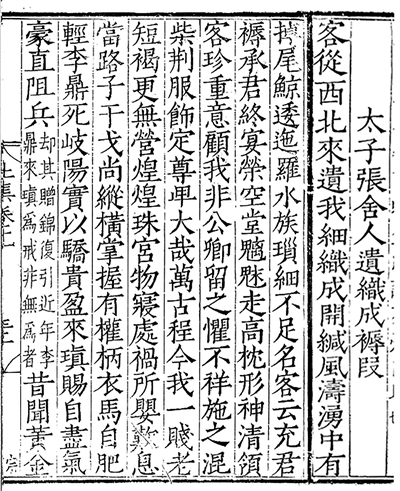 太子張舍人遺織成褥段
客從西北來遺我細織成開緘風濤湧中有
掉尾鯨逶迤羅水族瑣細不足名客云充君
褥承君終宴榮空堂魑魅走高枕形神清領
客珍重意顧我非公卿留之懼不祥施之混
柴荆服飾定尊卑大哉萬古程今我一賤老
短褐更無營煌煌珠宮物寢處禍所嬰歎息
當路子干戈尚縱橫掌握有權柄衣馬自肥
輕李鼎死岐陽實以驕貴盈來瑱賜自盡氣
豪直阻兵却其贈錦復引近年李鼎來瑱爲戒非無爲者昔聞黃金